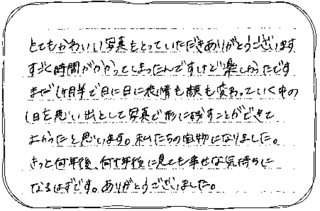 とてもかわいい写真をとっていただきありがとうございます
すごく時間がかかってしまったんですけど楽しかったです
まだ1ヶ月半で日に日に表情も顔も変わっていく中の
1日を思い出として写真で形に残すことができて
よかったと思います。私たちの宝物になりました。
きっと何年後、何十年後に見ても幸せな気持ちに
なるはずです。ありがとうございました。